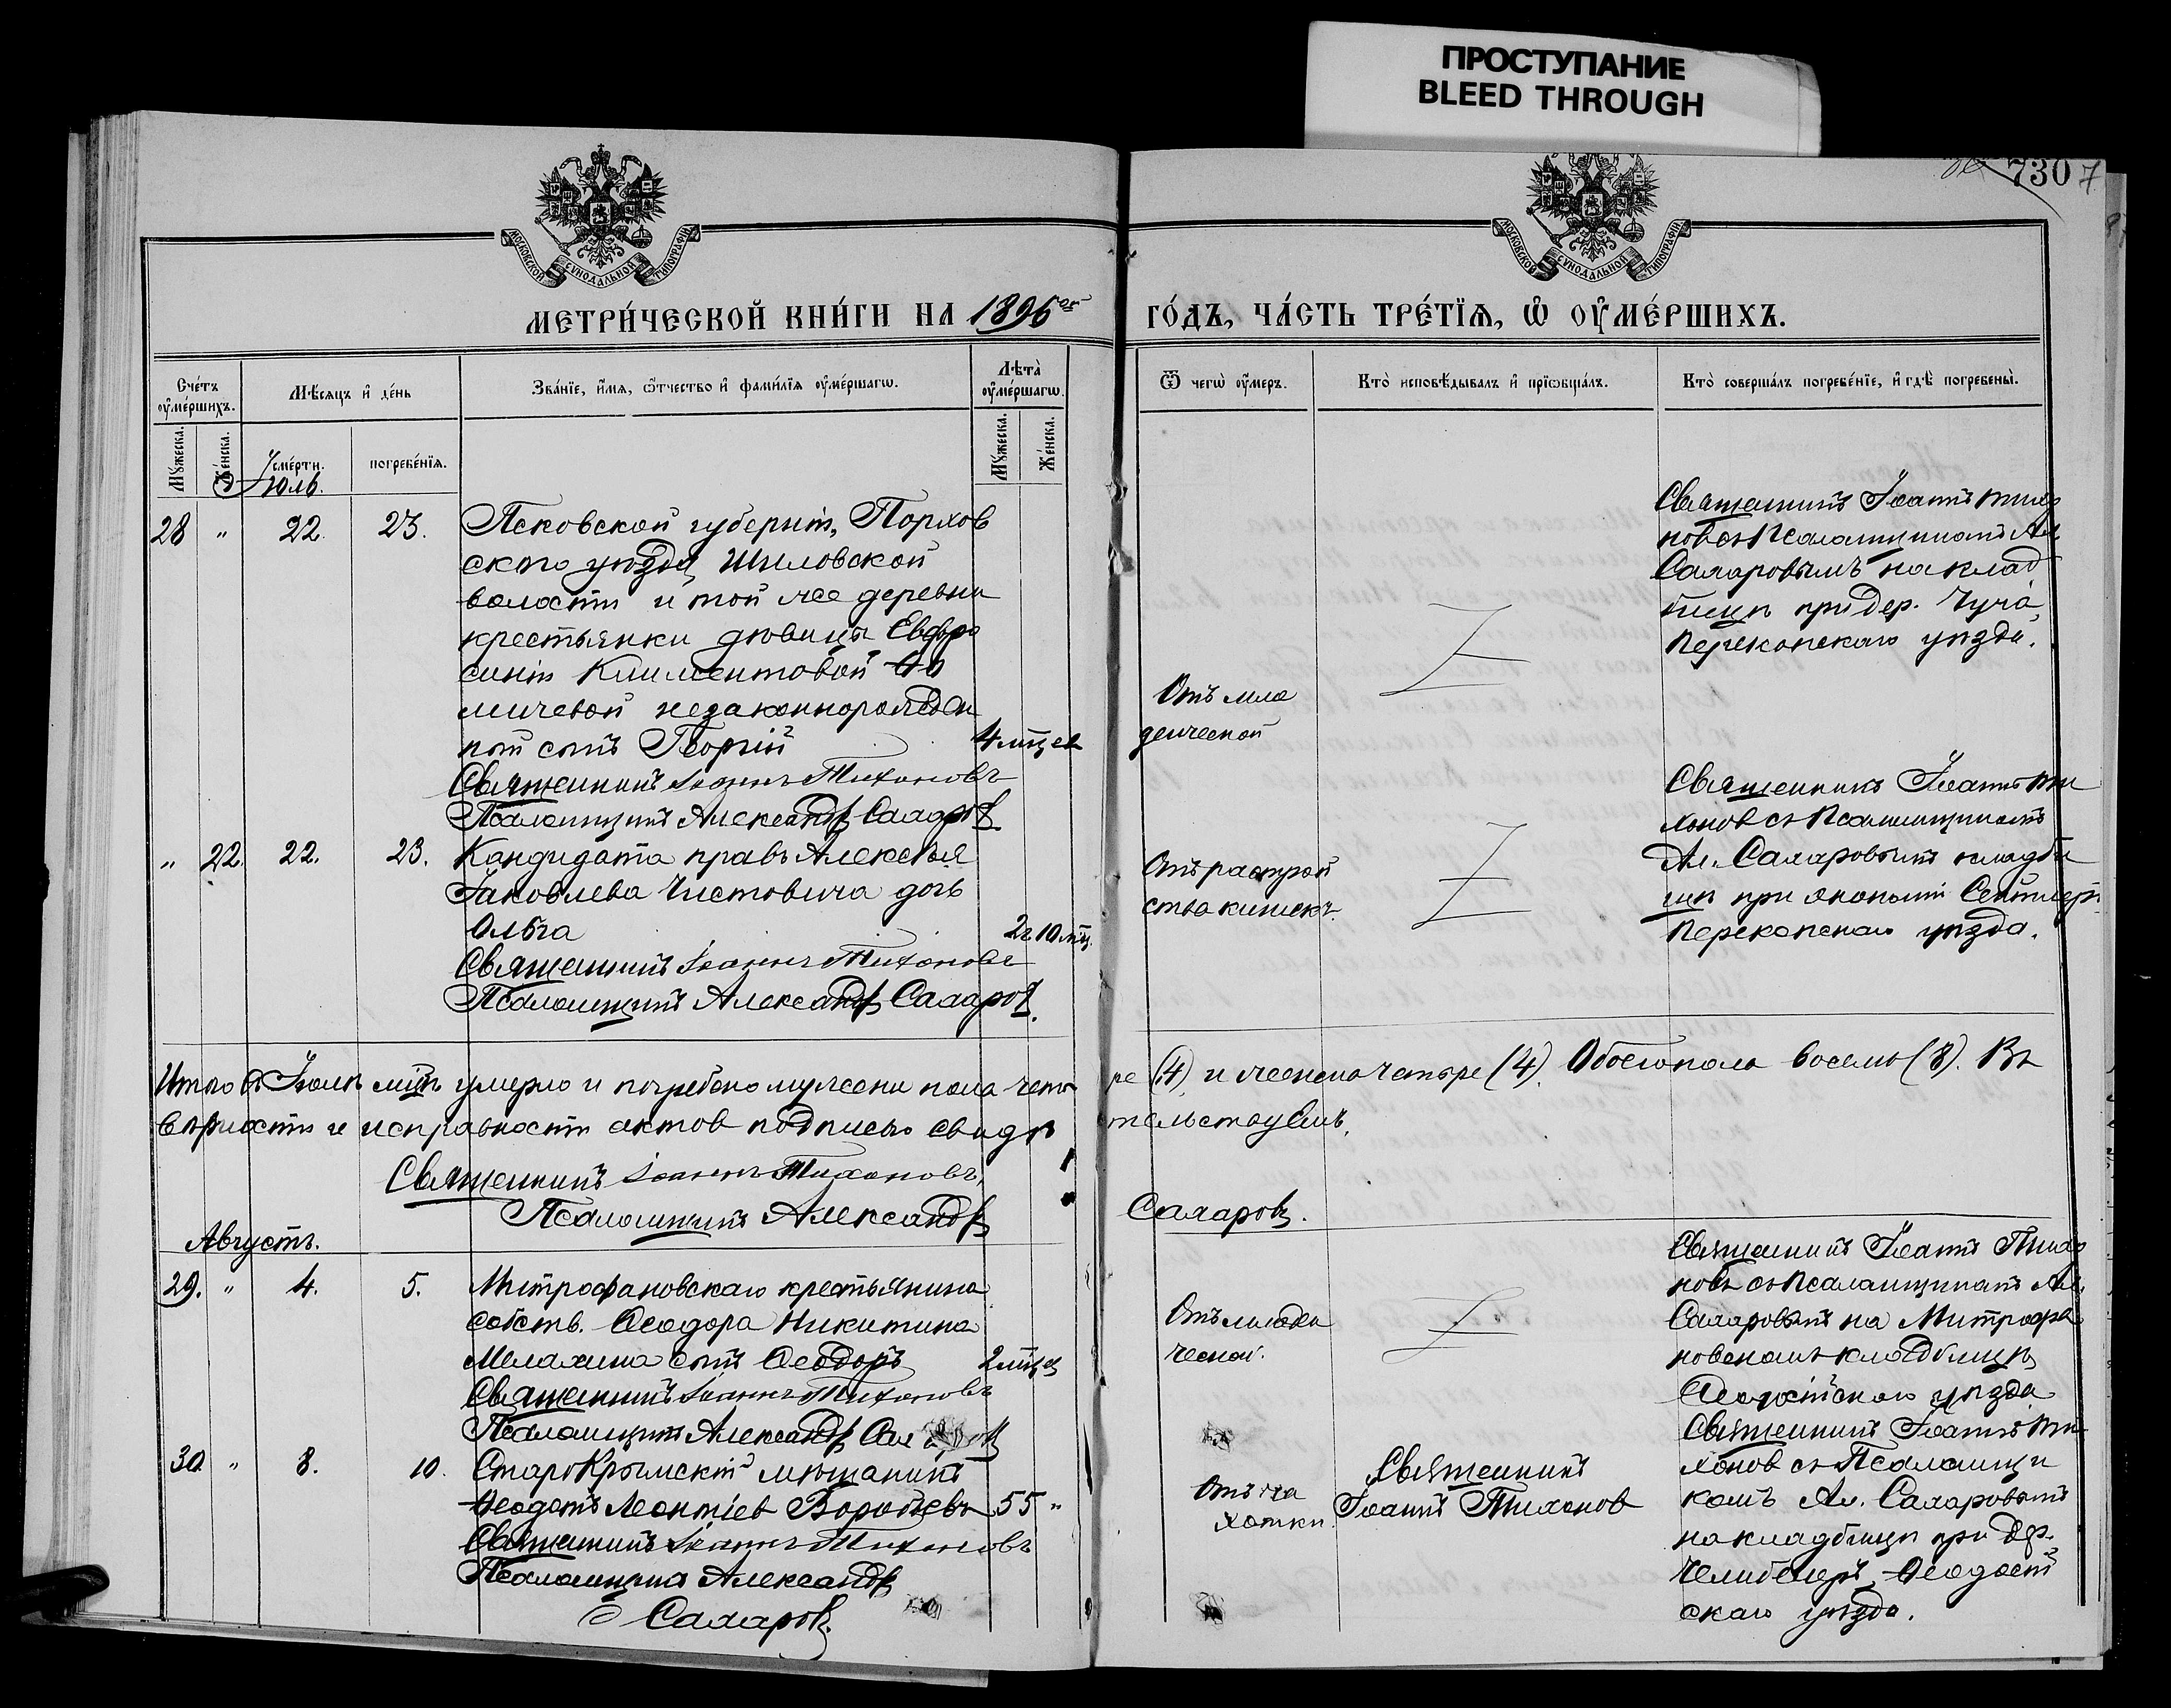 ПРОСТУПАНИЕ
BLEED THROUGH
730 7
МОСКОВСКОЙ СУНОДАЛЬНОЙ ТИПОГРАФІИ
МОСКОВСКОЙ СУНОДАЛЬНОЙ ТИПОГРАФІИ
МЕТРИ́ЧЕСКОЙ КНИ́ГИ НА 1896ой
ГО́ДЪ, ЧА́СТЬ ТРЕ́ТЇѦ, Ѡ҆ ОУ҆МЕ́РШИХЪ.
Сче́тъ оу҆ме́ршихъ.
Мѣ́сяцъ и҆ де́нь
Зва́нїе, и҆́мя, ѻ҆́тчество и҆ фами́лїя оу҆ме́ршагѡ.
Лѣта̀ оу҆ме́ршагѡ.
Ѿ чегѡ̀ оу҆́меръ.
Кто̀ исповѣ́дывалъ и҆ прїѡбща́лъ.
Кто̀ соверша́лъ погребе́нїе, и҆ гдѣ̀ погребены̀.
Му́жеска.
Же́нска.
сме́рти.
погребе́нїя.
Му́жеска.
Же́нска.
Іюль.
28 " 22. 23.
Псковской губерніи, Порхов
ского уѣзда, Шиловской
волости и той же деревни
крестьянки дѣвицы Евфро
синіи Климентовой Ѳо
мичевой незаконнорожден
ный сынъ Георгій 4 мѣцев
Священникъ Іоаннъ Тихоновъ
Псаломщикъ Александръ Сахаровъ
Отъ мла
денческой
Священникъ Іоаннъ Тихо
новъ съ Псаломщикомъ Ал.
Сахаровымъ на клад
бищѣ при дер. Чуча
Перекопскаго уѣзда.
" 22. 22. 23.
Кандидата правъ Алексѣя
Іаковлева Чистовича дочь
Ольга 2 г. 10 мѣц.
Священникъ Іоаннъ Тихоновъ
Псаломщикъ Александръ Сахаровъ.
Отъ разстрой
ства кишекъ.
Священникъ Іоаннъ Ти
хонов съ Псаломщикомъ
Ал. Сахаровымъ кладби
щѣ при экономіи
Перекопскаго уѣзда.
Итого въ Іюлѣ мѣцѣ умерло и погребено мужеска пола четы
ре (4) и женска четыре (4). Обоего пола восемь (8). Въ
вѣрности и исправности актов подписью свидѣ
тельствуемъ.
Священникъ Іоаннъ Тихоновъ,
Псаломщикъ Александръ
Сахаровъ.
Августъ.
29. " 4. 5.
Митрофановскаго крестьянина
собств. Ѳеодора Никитина
Малахина сынъ Ѳеодоръ 2 мѣцев
Священникъ Іоаннъ Тихоновъ
Псаломщикъ Александръ
Отъ младен
ческой.
Священникъ Іоаннъ Тихо
новъ съ Псаломщикомъ Ал.
Сахаровымъ на Митрофа
новскомъ кладбищѣ
Ѳеодосійского уѣзда
30. " 8. 10.
СтароКрымскій мѣщанинъ
Ѳеодотъ Леонтіев Воробьевъ 55 "
Священникъ Іоаннъ Тихоновъ
Псаломщикъ Александръ
Сахаровъ.
Отъ ча
хотки.
Священникъ
Іоаннъ Тихонов
Священникъ Іоаннъ Ти
хонов съ Псаломщи
комъ Ал. Сахаровымъ
на кладбищѣ при дер.
Челибехеръ, Ѳеодосій
скаго уѣзда.